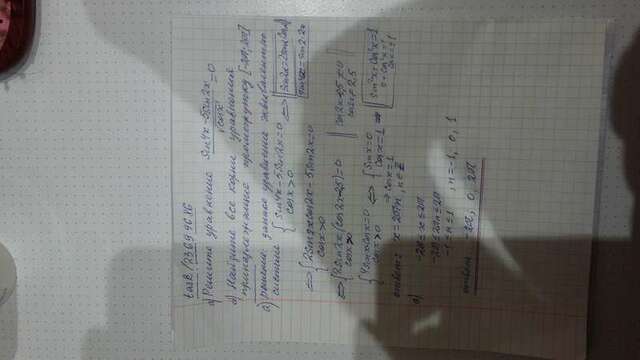 а) Решить уравнение (sin4x - 5sin2x)/√cosx = 0
б) Найдите все корни уравнения
принадлежащие промежутку [-2π; 2π]
а) решение: данное уравнение эквивалентно
системе { sin4x - 5sin2x = 0
cosx > 0
⇔ { 2sin2xcos2x - 5sin2x = 0
cosx > 0
⇔ { 2sin2x(cos2x - 2,5) = 0
cosx > 0
cos2x - 2,5 ≠ 0
{ 4sinxcosx = 0
cosx > 0 ⇔ { sinx = 0
cosx = 1
⇒ cosx = 1
ответ: x = 2πn, n ∈ Z
б)
-2π ≤ x ≤ 2π
-2π ≤ 2πn ≤ 2π
-1 ≤ n ≤ 1, n = -1, 0, 1
ответ: -2π, 0, 2π